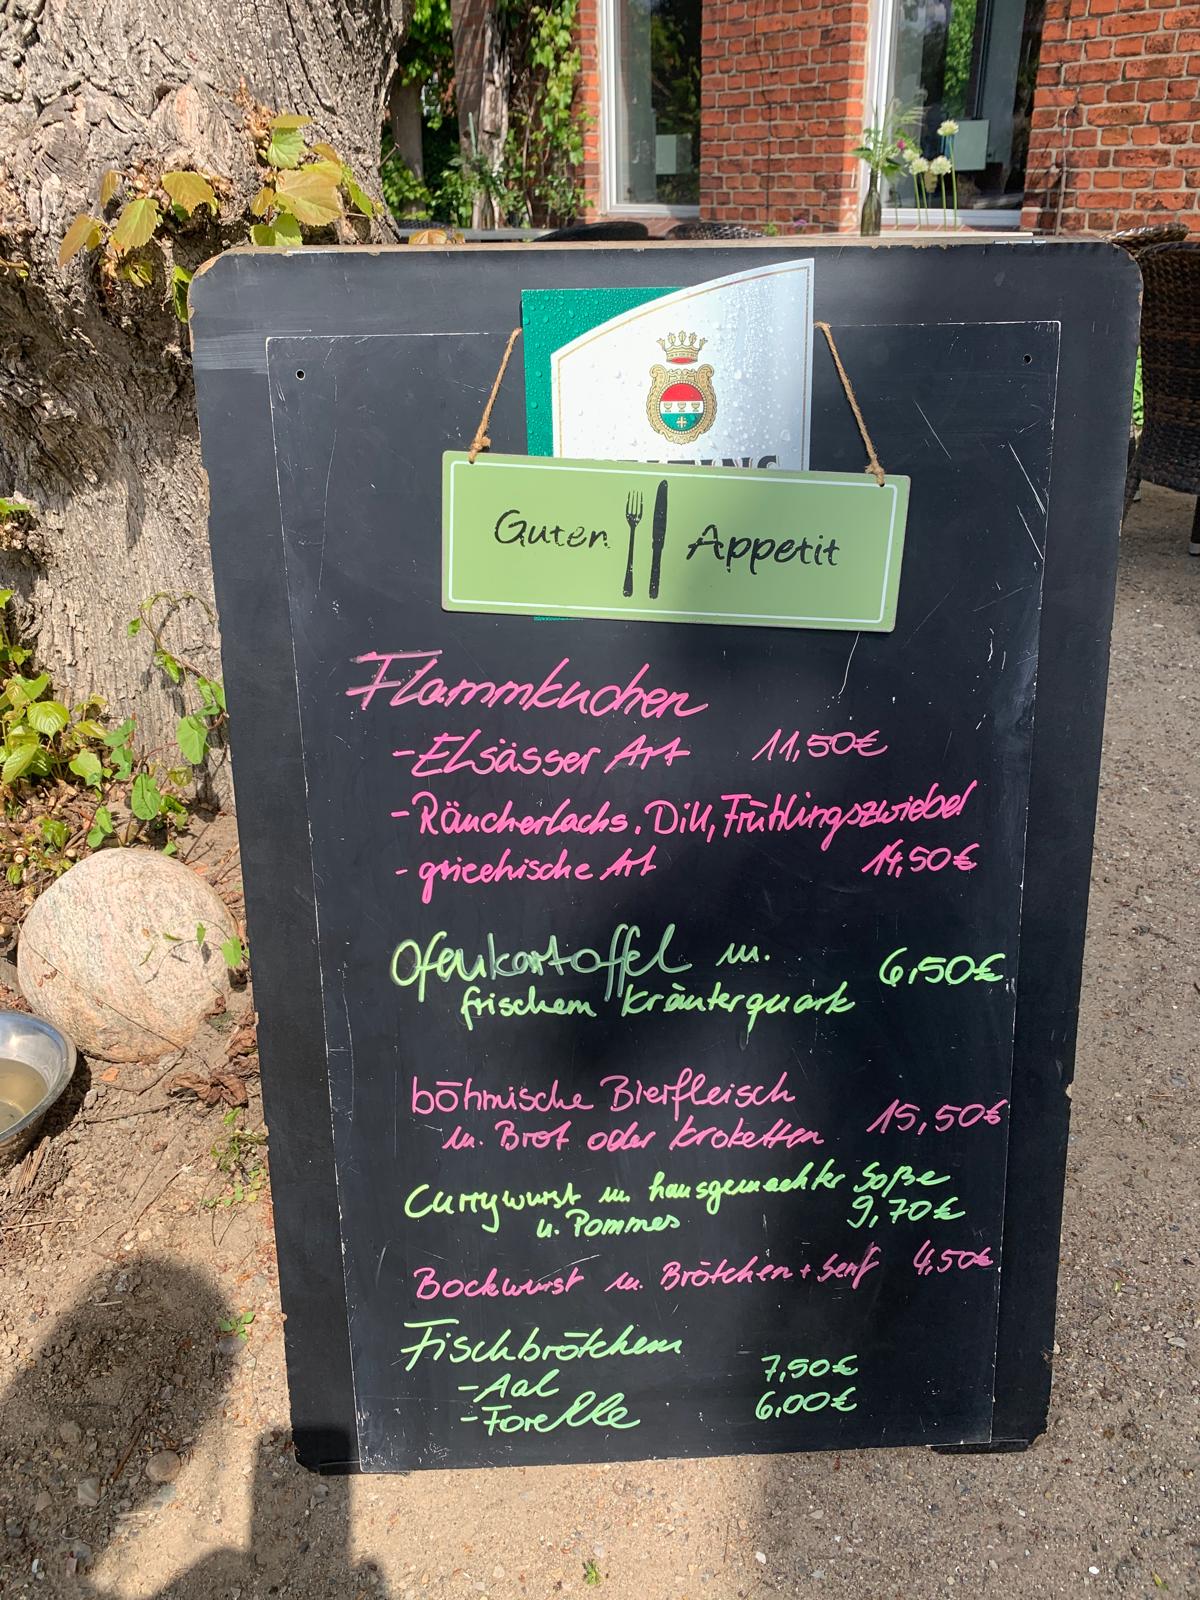 Guten Appetit
Flammkuchen
- Elsässer Art 11,50€
- Räucherlachs, Dill, Frühlingszwiebel
- griechische Art 14,50€
Ofenkartoffel m. 6,50€
frischem Kräuterquark
böhmische Bierfleisch
m. Brot oder Kroketten 15,50€
Currywurst m. hausgemachter Soße
u. Pommes 9,70€
Bockwurst m. Brötchen + Senf 4,50€
Fischbrötchen
- Aal 7,50€
- Forelle 6,00€